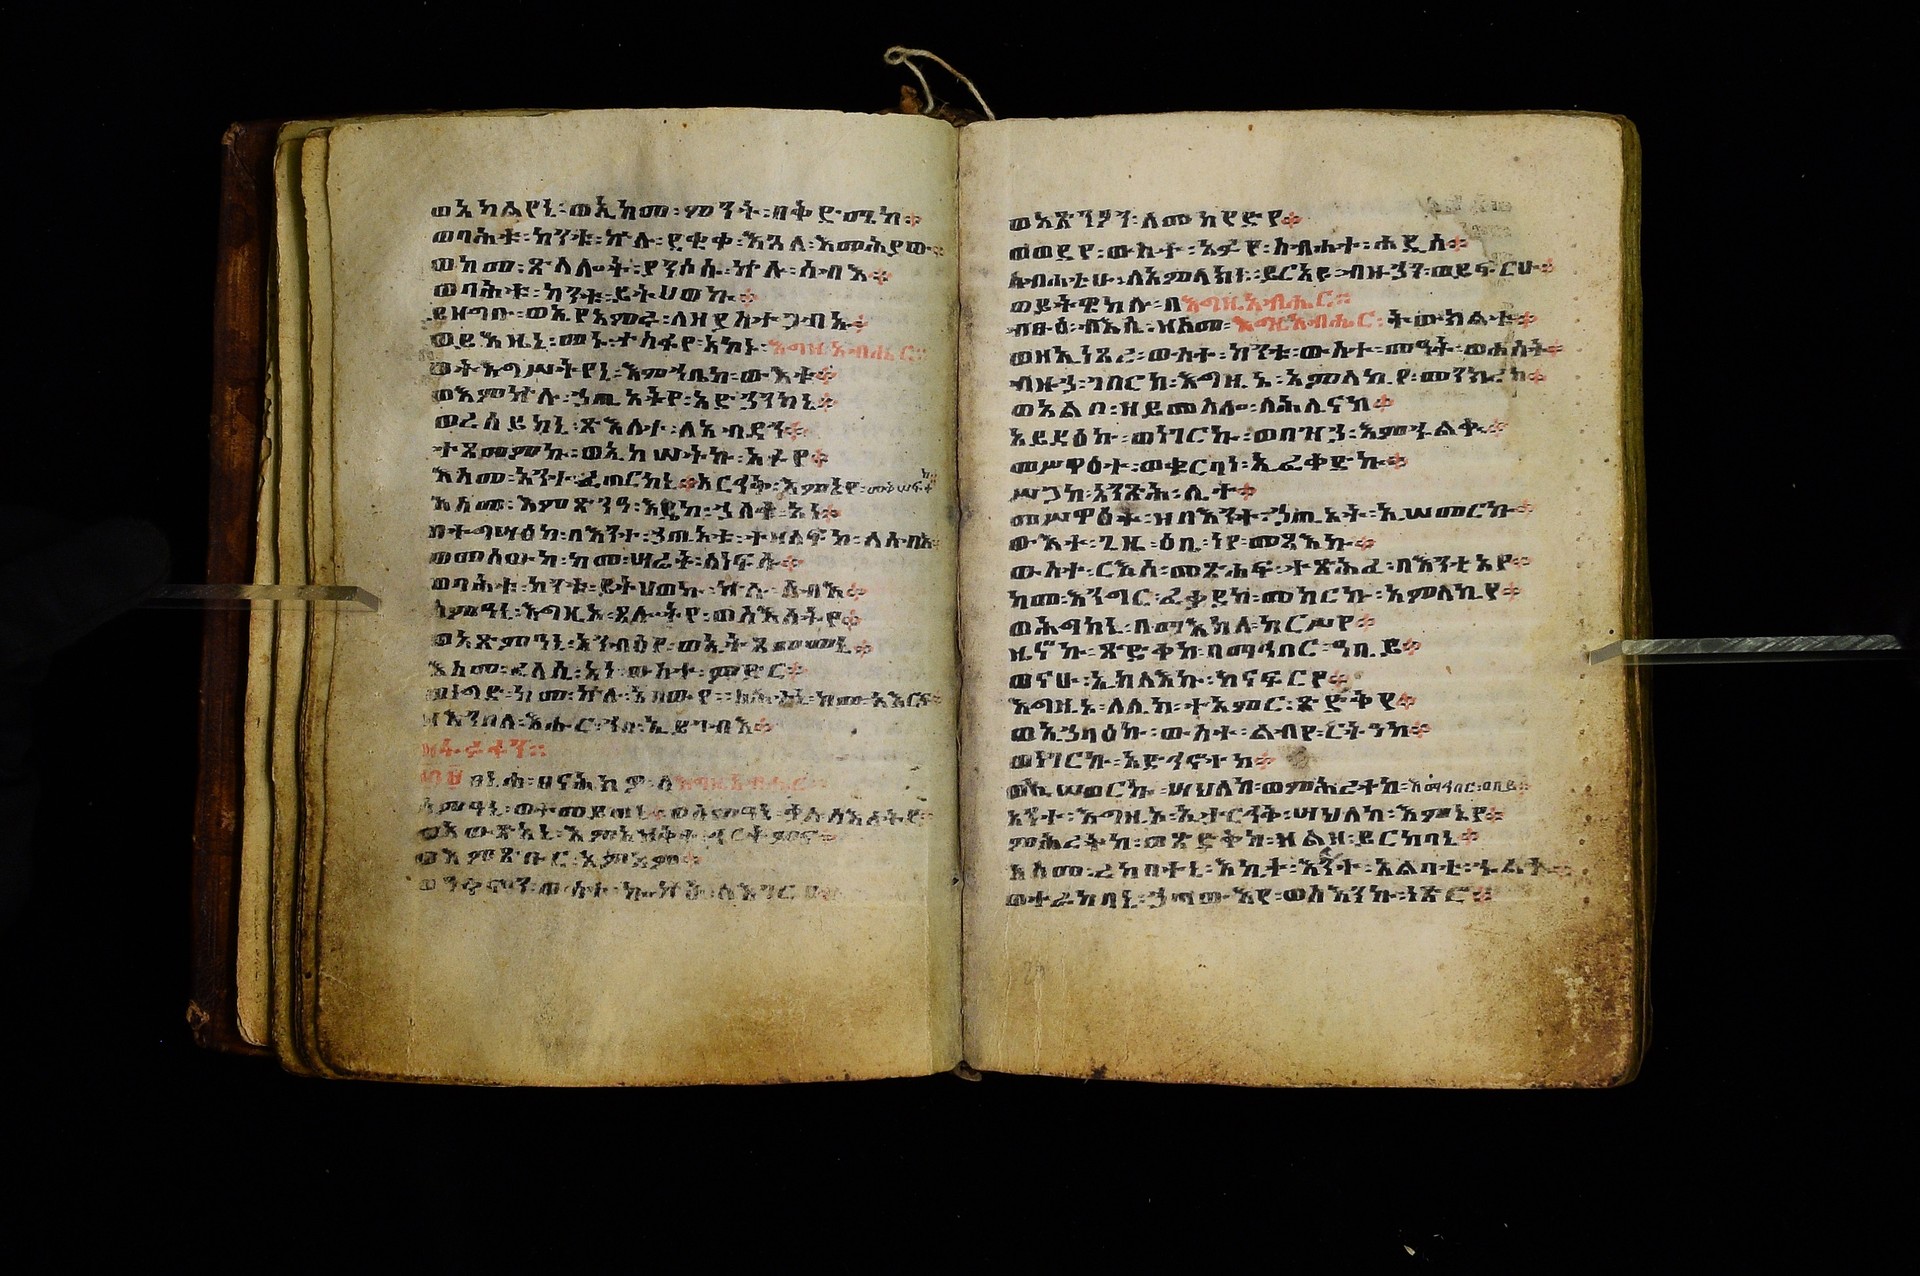 ወአካልየኒ፡ወኢከመ፡ምንት፡በቅድሜከ፨
ወባሕቱ፡ከንቱ፡ኵሉ፡ደቂቀ፡እጓለ፡እመሕያው፨
ወከመ፡ጽላሎት፡ያንሶሱ፡ኵሉ፡ሰብእ፨
ወባሕቱ፡ከንቱ፡ይትሀወኩ፨
ይዘግቡ፡ወኢየአምሩ፡ለዘ፡ያስተጋብኡ፨
ወይእዜኒ፡መኑ፡ተስፋየ፡አኮኑ፡እግዚአብሔር፨
ወትእግሥትየኒ፡እምኀቤከ፡ውእቱ፨
ወእምኵሉ፡ኃጢአትየ፡አድኅነኒ፨
ወረሰይከኒ፡ጽእለተ፡ለአብዳን፨
ተጸመምኩ፡ወኢከሠትኩ፡አፉየ፨
እስመ፡አንተ፡ፈጠርከኒ፨አርኅቅ፡እምኔየ፡መቅሠፍተከ፨
እስመ፡እምጽንዓ፡እዴከ፡ኃለቁ፡አነ፨
በተግሣፅከ፡በእንተ፡ኃጢአቱ፡ተዛለፍኮ፡ለሰብእ፨
ወመሰውከ፡ከመ፡ሣሬት፡ለነፍሱ፨
ወባሕቱ፡ከንቱ፡ይትሀወኩ፡ኵሉ፡ሰብእ፨
ስምዓኒ፡እግዚኦ፡ጸሎትየ፡ወስእለትየ፨
ወአጽምዓኒ፡አንብዕየ፡ወኢትጸመመኒ፨
እስመ፡ፈላሲ፡አነ፡ውስተ፡ምድር፨
ወነግድ፡ከመ፡ኵሉ፡አበውየ፡ኅድገኒ፡ከመ፡አእርፍ፨
ዘእንበለ፡እሑር፡ኀበ፡ኢይገብእ፨
ጸኒሐ፡ጸናሕክዎ፡ለእግዚአብሔር፨
ሰምዓኒ፡ወተመይጠኒ፡ወሰምዓኒ፡ቃለ፡ስእለትየ፨
ወአውጽአኒ፡እምአዘቅተ
ወእምጽቡር፡አምአም፨
ውስተ፡ኰኵሕ፡ለእገርየ፨
ወአጽንዖን፡ለመከየድየ፨
ወወደየ፡ውስተ፡አፉየ፡ስብሐተ፡ሐዲሰ፨
ስብሐቲሁ፡ለአምላክነ፡ይርአዩ፡ብዙኃን፡ወይፍርሁ፨
ወይትዌከሉ፡በእግዚአብሔር፨
ብፁዕ፡ብእሲ፡ዘስመ፡እግዚአብሔር፡ትውክልቱ፨
ወዘኢነጸረ፡ውስተ፡ከንቱ፡ውስተ፡መዓት፡ወሐሰት፨
ብዙኃ፡ገበርከ፡እግዚኦ፡አምላኪየ፡መንክረከ፨
ወአልቦ፡ዘይመስሎ፡ለሕሊናከ፨
አይዳዕኩ፡ወነገርኩ፡ወበዝኃ፡እምኁልቁ፨
መሥዋዕተ፡ወቍርባነ፡ኢፈቀድኩ፨
ሥጋከ፡አንጽሕ፡ሊተ፨
መሥዋዕተ፡ዘበእንተ፡ኃጢአት፡ኢሠመርኩ፨
ውእተ፡ጊዜ፡ዕቤ፡ነየ፡መጻእኩ፨
ውስተ፡ርእሰ፡መጽሐፍ፡ተጽሕፈ፡በእንቲአየ፨
ከመ፡እንግር፡ፈቃደከ፡መከርኩ፡አምላኪየ፨
ወሕግከኒ፡በማእከለ፡ከርሥየ፨
ዜኖኩ፡ጽድቀከ፡በማኅበር፡ዓቢይ፨
ወናሁ፡ኢከላእኩ፡ከናፍርየ፨
እግዚኦ፡ለሊከ፡ተአምር፡ጽድቅየ፨
ወኢኃባዕኩ፡ውስተ፡ልብየ፡ርትዓከ፨
ወነገርኩ፡አድኅኖተከ፨
ወኢሠወርኩ፡ሣህለከ፡ወምሕረተከ፡እማኅበር፡ዐቢይ፨
አንተ፡እግዚኦ፡ኢታርኅቅ፡ሣህለከ፡እምኔየ፨
ምሕረትከ፡ወጽድቅከ፡ዘልፈ፡ይርከባኒ፨
እስመ፡ረከበተኒ፡እኪት፡እንተ፡አልባቲ፡ኁልቍ፨
ወተረከባኒ፡ኃጣውእየ፡ወስእንኩ፡ነጽሮ፨